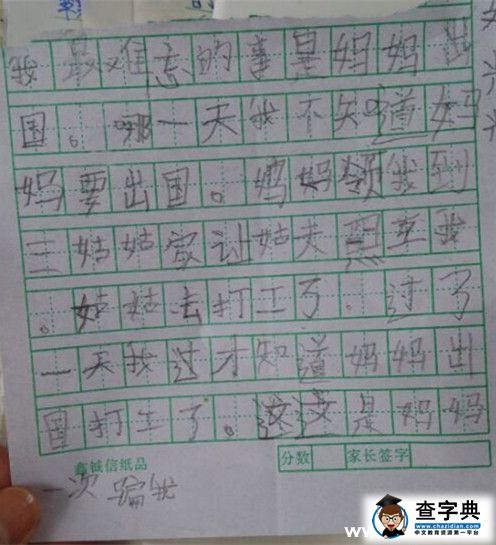 我最难忘的事是妈妈出
国。哪一天我不知道妈
妈要出国。妈妈领我到
三姑姑家让姑夫照至我
。姑姑去打工了.过了
一天我过才知道妈妈出
国打工了。这这是妈妈
鑫诚信纸品
分数 家长签字
一次骗我
查字典
www.chazidian.com
中文教育资源第一平台